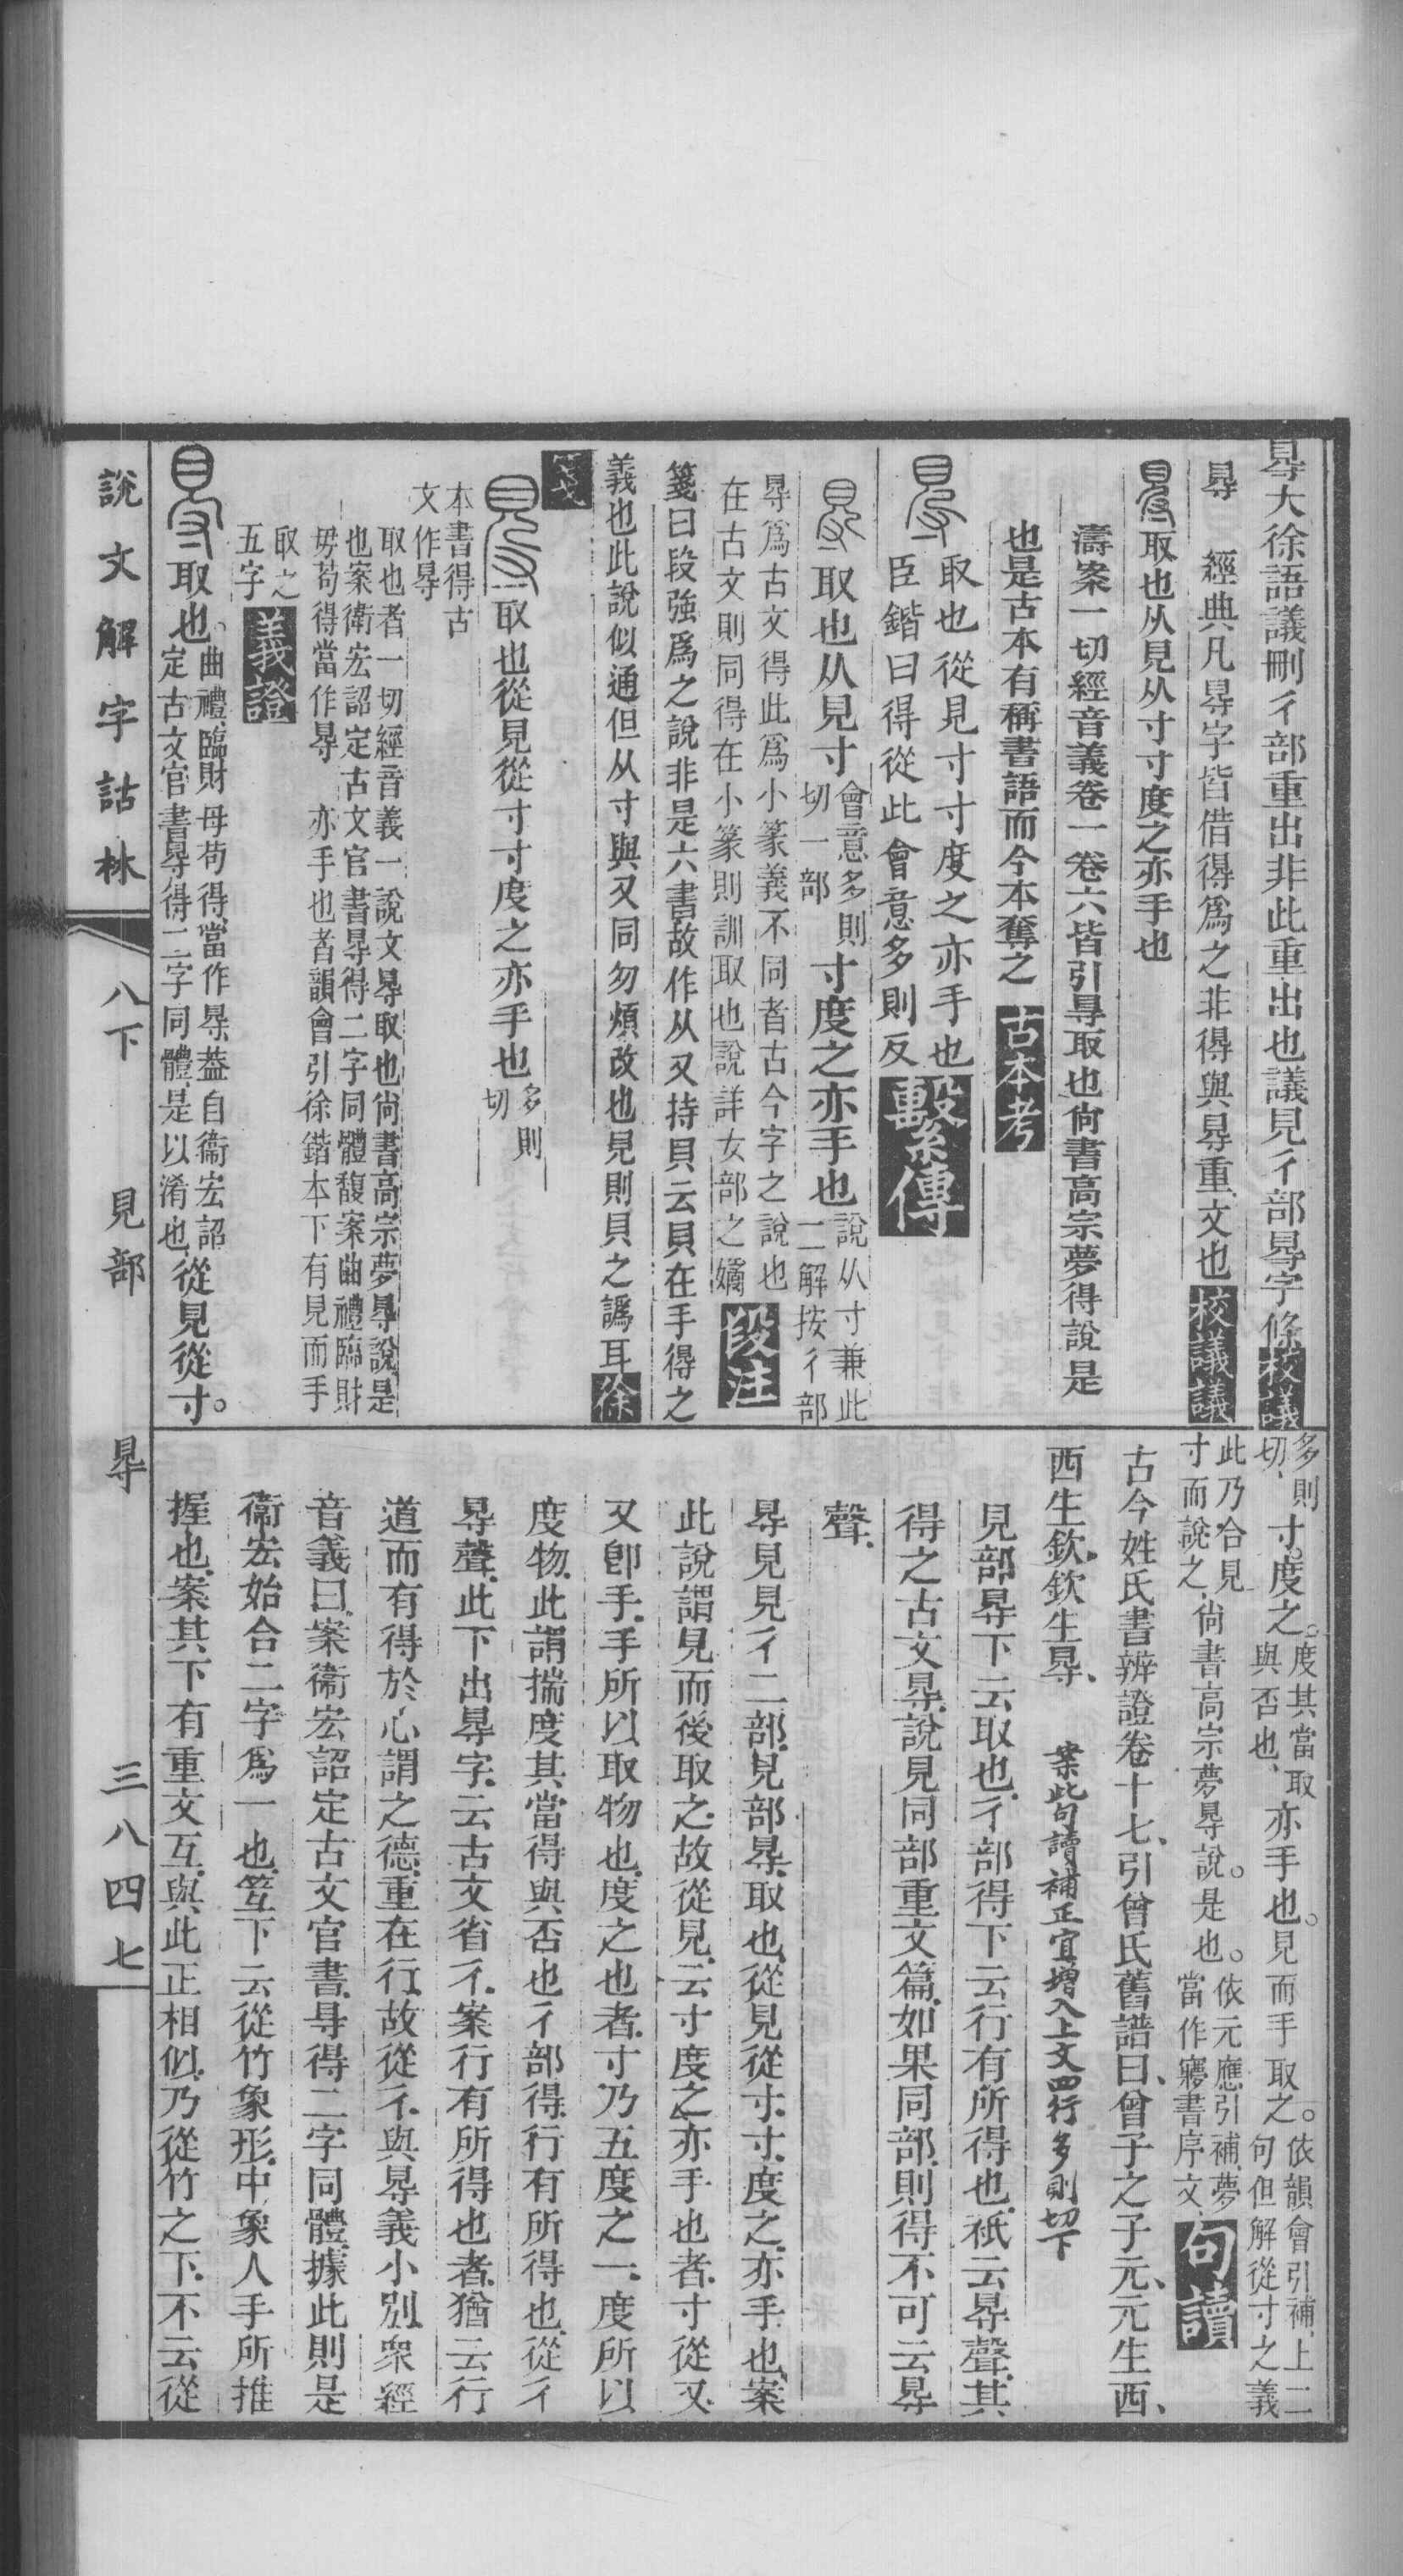 㝵大徐語議刪彳部重出非此重出也議見彳部㝵字條校議
㝵　經典凡㝵字皆借得爲之非得與㝵重文也校議議
取也从見从寸寸度之亦手也
濤案一切經音義卷一卷六皆引㝵取也尙書高宗夢得說是
也是古本有稱書語而今本奪之古本考
取也從見寸寸度之亦手也
臣鍇曰得從此會意多則反
繫傳
取也从見寸會意多則切一部寸度之亦手也說从寸兼此二解按彳部
㝵爲古文得此爲小篆義不同者古今字之說也
在古文則同得在小篆則訓取也說詳女部之嬌
段注
箋曰段強爲之說非是六書故作从又持貝云貝在手得之
義也此說似通但从寸與又同勿煩改也見則貝之譌耳徐
箋
取也從見從寸寸度之亦手也多則切
本書得古
文作㝵
取也者一切經音義一說文㝵取也尙書高宗夢㝵說是
也案衛宏詔定古文官書㝵得二字同體馥案曲禮臨財
毋苟得當作㝵　亦手也者韻會引徐鍇本下有見而手
取之
五字
義證
取也。曲禮、臨財毋苟得、當作㝵、葢自衞宏詔定古文官書㝵得二字同體、是以淆也、從見從寸。
說文解字詁林　八下　見部　㝵　三八四七
多則切、寸。度之。度其當取與否也、亦手也。見而手取之。依韻會引補、上二句但解從寸之義
此乃合見寸而說之、尙書高宗夢㝵說。是也。依元應引補、夢當作㝱書序文、句讀
古今姓氏書辨證卷十七、引曾氏舊譜曰、曾子之子元、元生西、
西生欽、欽生㝵、　案此句讀補正宜增入上文四行多則切下
見部㝵下云取也、彳部得下云行有所得也、祇云㝵聲、其
得之古文㝵、說見同部重文篇、如果同部、則得不可云㝵
聲、
㝵見見彳二部、見部㝵、取也、從見從寸、寸、度之、亦手也、案
此說謂見而後取之、故從見、云寸度之、亦手也者、寸從又、
又卽手、手所以取物也、度之也者、寸乃五度之一、度所以
度物、此謂揣度其當得與否也、彳部得、行有所得也、從彳
㝵聲、此下出㝵字、云古文省彳、案行有所得也者、猶云行
道而有得於心謂之德、重在行、故從彳、與㝵義小別、衆經
音義曰、案衞宏詔定古文官書、㝵得二字同體、據此則是
衞宏始合二字爲一也、笠下云從竹象形、中象人手所推
握也、案其下有重文互、與此正相似、乃從竹之下、不云從